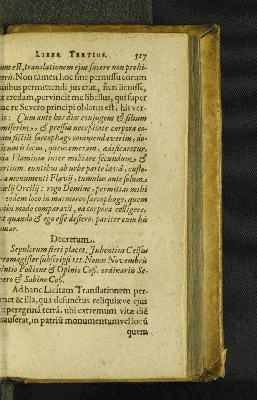 LIBER TERTIUS. 527
um est, translationem ejus facere non prohi-
Non tamen hoc sine permissu eorum
quibus permittendi jus erat, fieri licuisse,
ut credam, pervincit me libellus, qui super
hac re Severo principi oblatus est, his ver-
is: Cum ante hos dies conjugem & filium
amiserim, & pressus necessitate corpora eo-
um fictili sarcophago commendaverim, do-
icum is locus, quem emeram, ædificaretur,
via Flaminia inter miliare secundum &
tertium euntibus ab urbe parte lævâ, custo-
monumenti Flavii, tumulus ante
Orcilii: rogo Domine, permittas mihi
eodem loco in marmoreo sarcophago, quem
mihi modo comparavi, ea corpora colligere,
ut quando & ego esse desero; pariter cum his
ponar.
Decretum.
Sepulcrum fieri placet; Jubentius Celsus
romagister subscripsi III. Nonas Novembris
Pollione & Opinio Cos. ordinariis Se-
vero & Sabino Cos.
Ad hanc Licitam Translationem per-
& illa, qua defunctus reliquiæve ejus
peregrina terrâ, ubi extremum vitæ diē
clauserat, in patriū monumentum vel locū
quem